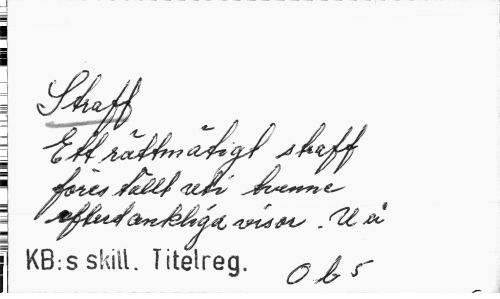 Straff
Ett rättmätigt straff
förestäldt uti tvenne
eftertänkliga visor. U å
KB:s skill. Titelreg.
O b 5